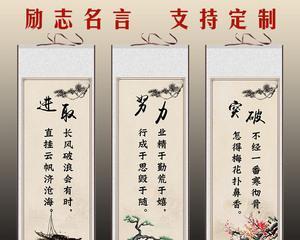 励志名言 支持定制
进取
长风破浪会有时,
直挂云帆济沧海。
努力
业精于勤荒于嬉,
行成于思毁于随。
突破
不经一番寒彻骨,
怎得梅花扑鼻香。